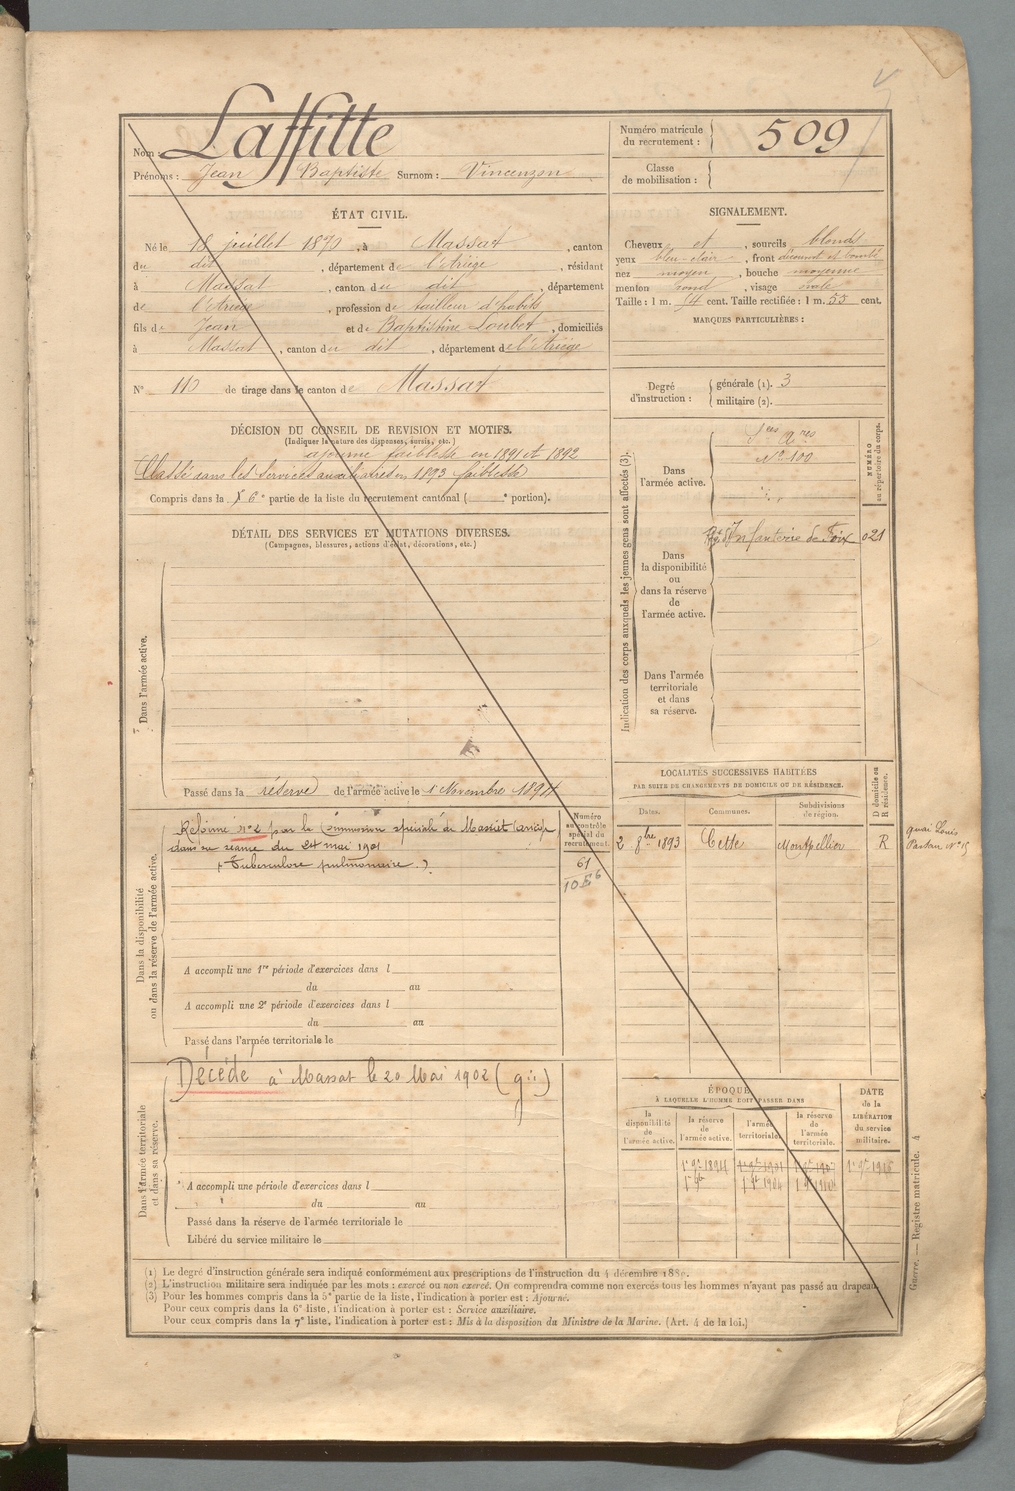 Nom : Laffitte
Prénoms : Jean Baptiste Surnom : Vincenzon
Numéro matricule du recrutement : 509
Classe de mobilisation :
ÉTAT CIVIL.
Né le 18 juillet 1870, à Massat, canton
du dit, département de l'Ariège, résidant
à Massat, canton du dit, département
de l'Ariège, profession de tailleur d'habits
fils de Jean et de Baptistine Loubet, domiciliés
à Massat, canton du dit, département de l'Ariège
N° 110 de tirage dans le canton de Massat
SIGNALEMENT.
Cheveux et, sourcils blonds
yeux bleu-clair, front découvert et bombé
nez moyen, bouche moyenne
menton rond, visage ovale
Taille : 1 m. 54 cent. Taille rectifiée : 1 m. 55 cent.
MARQUES PARTICULIÈRES :
Degré d'instruction : générale (1). 3
militaire (2).
DÉCISION DU CONSEIL DE REVISION ET MOTIFS.
(Indiquer la nature des dispenses, sursis, etc.)
ajourné faiblesse en 1891 et 1892
Classé dans les services auxiliaires en 1893 faiblesse
Compris dans la 6e partie de la liste du recrutement cantonal ( e portion).
DÉTAIL DES SERVICES ET MUTATIONS DIVERSES.
(Campagnes, blessures, actions d'éclat, décorations, etc.)
Dans l'armée active.
Passé dans la réserve de l'armée active le 1 Novembre 1894
Indication des corps auxquels les jeunes gens sont affectés (3).
NUMÉRO au répertoire du corps.
Dans l'armée active.
Sces Ares
N° 100
Dans la disponibilité ou dans la réserve de l'armée active.
Infanterie de Foix 021
Dans l'armée territoriale et dans sa réserve.
Dans la disponibilité ou dans la réserve de l'armée active.
Numéro au contrôle spécial du recrutement.
Réformé n°2 par la Commission spéciale de
dans sa séance du 24 mai 1901
(Tuberculose pulmonaire.)
61
A accompli une 1re période d'exercices dans l
du au
A accompli une 2e période d'exercices dans l
du au
Passé dans l'armée territoriale le
LOCALITÉS SUCCESSIVES HABITÉES
PAR SUITE DE CHANGEMENTS DE DOMICILE OU DE RÉSIDENCE.
D domicile ou R résidence.
Dates. Communes. Subdivisions de région.
2 8bre 1893 Cette Montpellier R
quai Louis
Pasteur N° 15
Dans l'armée territoriale et dans sa réserve.
Décédé à Massat le 20 Mai 1902
A accompli une période d'exercices dans l
du au
Passé dans la réserve de l'armée territoriale le
Libéré du service militaire le
ÉPOQUE
À LAQUELLE L'HOMME DOIT PASSER DANS
la disponibilité de l'armée active.
la réserve de l'armée active.
l'armée territoriale.
la réserve de l'armée territoriale.
DATE de la LIBÉRATION du service militaire.
(1) Le degré d'instruction générale sera indiqué conformément aux prescriptions de l'instruction du 4 décembre
(2) L'instruction militaire sera indiquée par les mots : exercé ou non exercé. On comprendra comme non exercés tous les hommes n'ayant pas passé au drapeau.
(3) Pour les hommes compris dans la 5e partie de la liste, l'indication à porter est : Ajourné.
Pour ceux compris dans la 6e liste, l'indication à porter est : Service auxiliaire.
Pour ceux compris dans la 7e liste, l'indication à porter est : Mis à la disposition du Ministre de la Marine. (Art. 4 de la loi.)
Guerre. — Registre matricule. 4